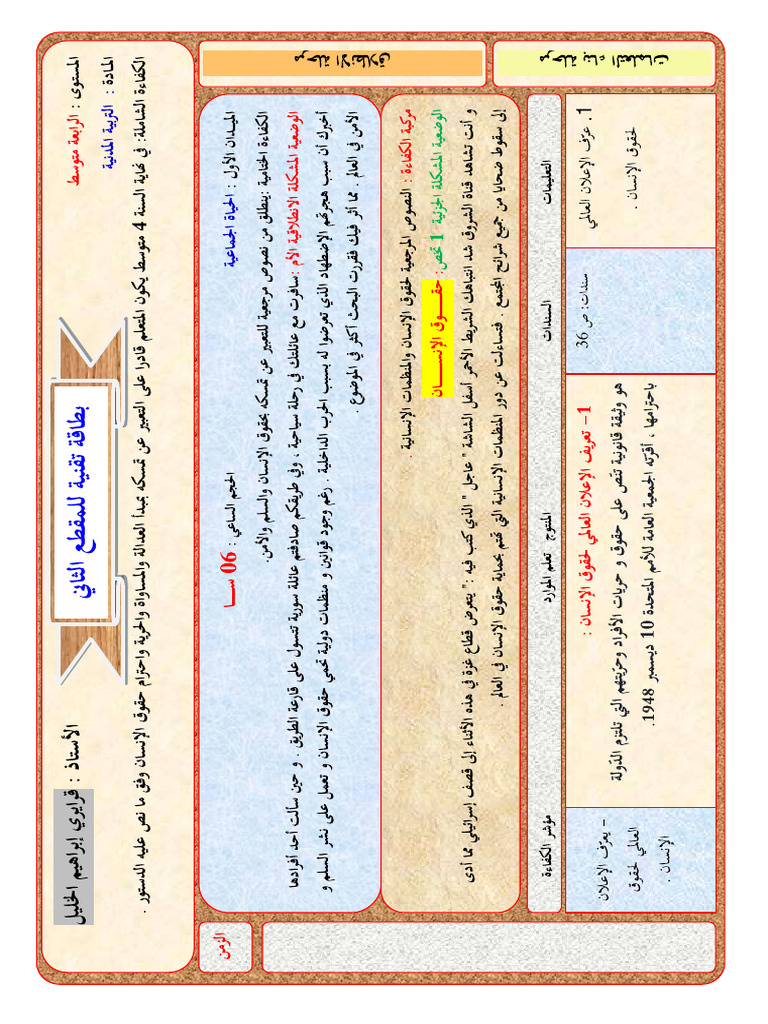 المستوى : الرابعة متوسط
المادة : التربية المدنية
بطاقة تقنية للمقطع الثاني
الأستاذ : قرايري إبراهيم الخليل
الكفاءة الشاملة: في نهاية السنة 4 متوسط يكون المتعلم قادرا على التعبير عن تمسكه بمبدأ العدالة والمساواة والحرية واحترام حقوق الإنسان وفق ما نص عليه الدستور .
مرحلة الانطلاق
الزمن
الميدان الأول : الحياة الجماعية
الحجم الساعي : 06 سا
الكفاءة الختامية :ينطلق من نصوص مرجعية للتعبير عن تمسكه بحقوق الإنسان والسلم والأمن.
الوضعية المشكلة الانطلاقية الأم :سافرت مع عائلتك في رحلة سياحية ، وفي طريقكم صادفتم عائلة سورية تتسول على قارعة الطريق . و حين سألت أحد أفرادها
أخبرك أن سبب هجرتهم الإضطهاد الذي تعرضوا له بسبب الحرب الداخلية . رغم وجود قوانين و منظمات دولية تحمي حقوق الإنسان و تعمل على نشر السلم و
الأمن في العالم . مما أثر فيك فقررت البحث أكثر في الموضوع .
مركبة الكفاءة : النصوص المرجعية لحقوق الإنسان والمنظمات الإنسانية .
الوضعية المشكلة الجزئية 1 تخص: حقـــوق الإنســـان
و أنت تشاهد قناة الشروق شد انتباهك الشريط الأحمر أسفل الشاشة " عاجل " الذي كتب فيه :" يتعرض قطاع غزة في هذه الأثناء إلى قصف إسرائيلي مما أدى
إلى سقوط ضحايا من جميع شرائح المجتمع . فتساءلت عن دور المنظمات الإنسانية التي تهتم بحماية حقوق الإنسان في العالم .
مرحلة بناء التعلمات
التعليمات
السندات
المنتوج تعلم الموارد
مؤشر الكفاءة
1. عرّف الإعلان العالمي
لحقوق الإنسان .
سندات: ص 36
1- تعريف الإعلان العالمي لحقوق الإنسان :
هو وثيقة قانونية تنص على حقوق و حريات الأفراد وحريتهم التي تلتزم الدولة
باحترامها ، أقرته الجمعية العامة للأمم المتحدة 10 ديسمبر 1948.
- يعرّف الإعلان
العالمي لحقوق
الإنسان .